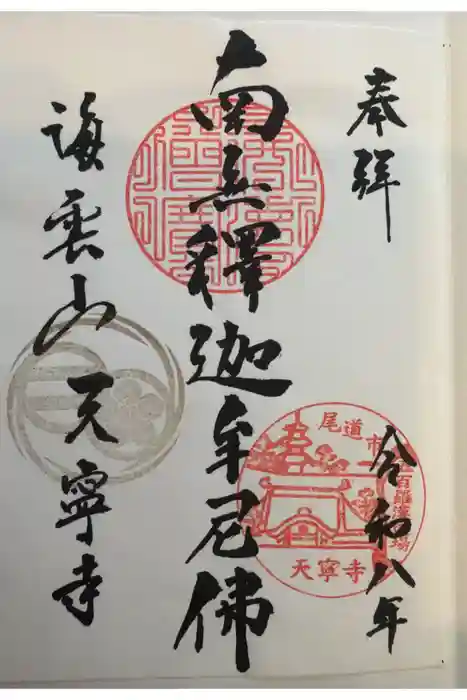 奉拝
令和八年
南無釋迦牟尼佛
海雲山天寧寺
尾道市
五百羅漢霊場
天寧寺